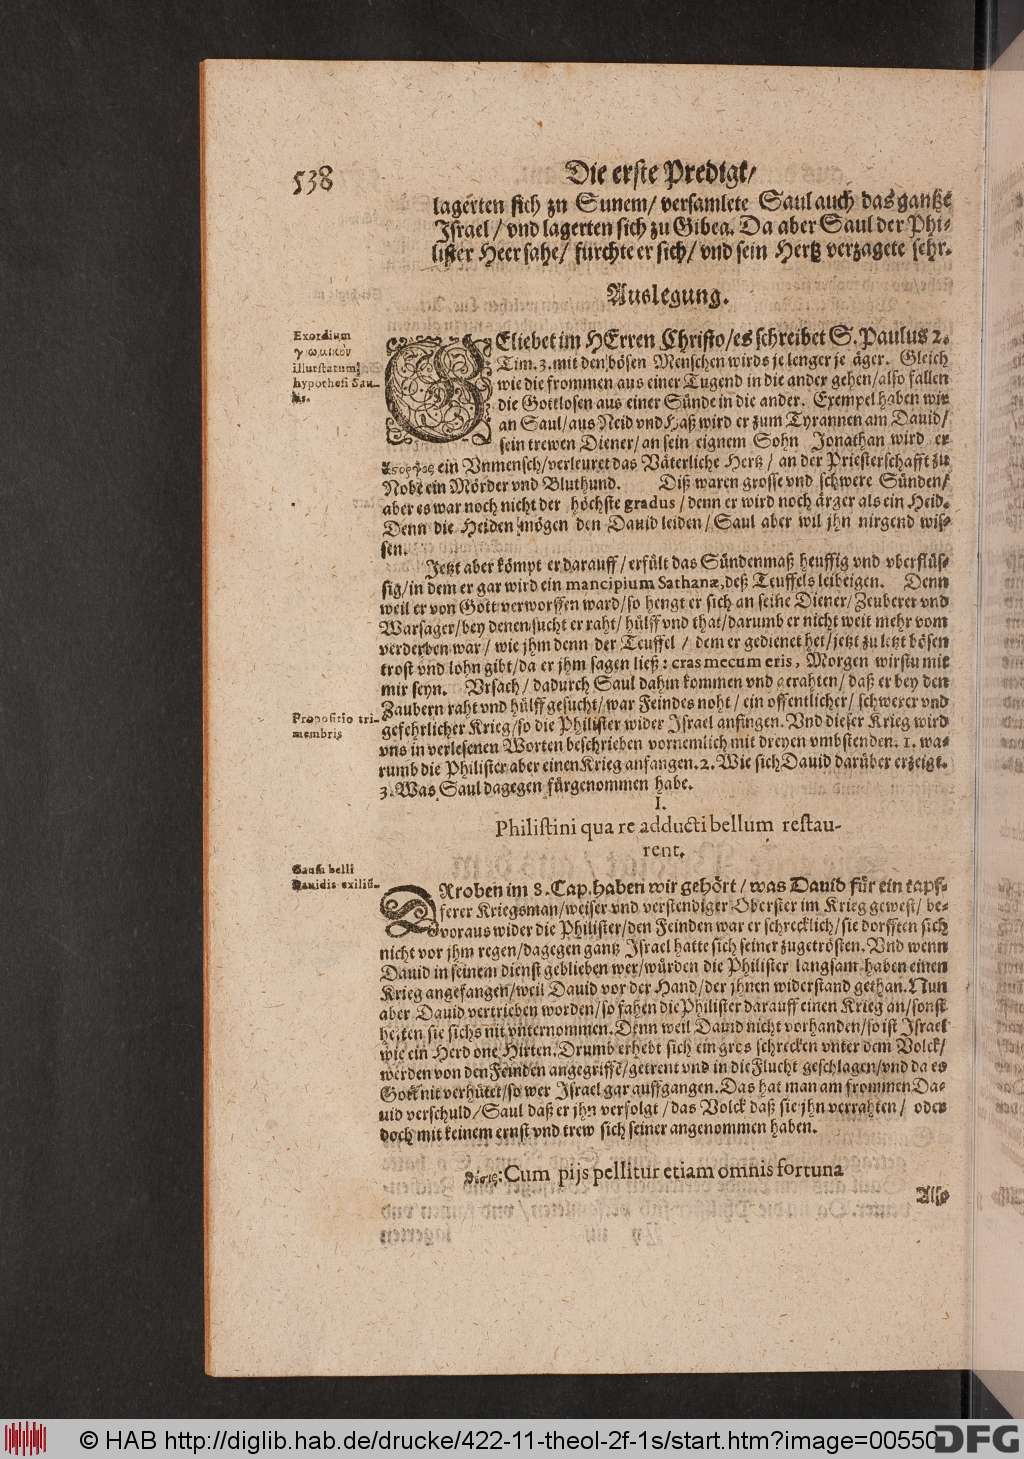 538
Die erste Predigt/
lagerten sich zu Sunem/ versamlete Saul auch das gantze
Israel/ vnd lagerten sich zu Gibea. Da aber Saul der Phi-
lister Heer sahe/ furchte er sich/ vnd sein Hertz verzagete sehr.
Auslegung.
Exordium
γνωμικὸν
illustratum
hypothesi Sau-
lis.
GEliebet im HErren Christo/ es schreibet S. Paulus 2.
Tim. 3. mit den bösen Menschen wirds je lenger je äger. Gleich
wie die frommen aus einer Tugend in die ander gehen/ also fallen
die Gottlosen aus einer Sünde in die ander. Exempel haben wir
an Saul/ aus Neid vnd Haß wird er zum Tyrannen am Dauid/
sein trewen Diener/ an sein eignem Sohn Jonathan wird er
ἄτοργος ein Vnmensch/ verleuret das Väterliche Hertz/ an der Priesterschafft zu
Nobe ein Mörder vnd Bluthund. Diß waren grosse vnd schwere Sünden/
aber es war noch nicht der höchste gradus/ denn er wird noch ärger als ein Heid.
Denn die Heiden mögen den Dauid leiden/ Saul aber wil jhn nirgend wis-
sen.
Jetzt aber kömpt er darauff/ erfült das Sündenmaß heuffig vnd vberflüs-
sig/ in dem er gar wird ein mancipium Sathanæ, deß Teuffels leibeigen. Denn
weil er von Gott verworffen ward/ so hengt er sich an seine Diener/ Zeuberer vnd
Warsager/ bey denen sucht er raht/ hülff vnd that/ darumb er nicht weit mehr vom
verderben war/ wie jhm denn der Teuffel/ dem er gedienet het/ jetzt zu letzt bösen
trost vnd lohn gibt/ da er jhm sagen ließ: cras mecum eris, Morgen wirstu mit
mir seyn. Vrsach/ dadurch Saul dahin kommen vnd gerahten/ daß er bey den
Zaubern raht vnd hülff gesucht/ war Feindes noht/ ein offentlicher/ schwerer vnd
Propositio tri-
membris
gefehrlicher Krieg/ so die Philister wider Israel anfingen. Vnd dieser Krieg wird
vns in verlesenen Worten beschrieben vornemlich mit dreyen vmbstenden. 1. wa-
rumb die Philister aber einen Krieg anfangen. 2. Wie sich Dauid darüber erzeigt.
3. Was Saul dagegen fürgenommen habe.
I.
Philistini qua re adducti bellum restau-
rent.
Causa belli
Dauidis exiliũ.
DRoben im 8. Cap. haben wir gehört/ was Dauid für ein tapf-
ferer Kriegsman/ weiser vnd verstendiger Oberster im Krieg gewest/ be-
voraus wider die Philister/ den Feinden war er schrecklich/ sie dorfften sich
nicht vor jhm regen/ dagegen gantz Israel hatte sich seiner zugetrösten. Vnd wenn
Dauid in seinem dienst geblieben wer/ würden die Philister langsam haben einen
Krieg angefangen/ weil Dauid vor der Hand/ der jhnen widerstand gethan. Nun
aber Dauid vertrieben worden/ so fahen die Philister darauff einen Krieg an/ sonst
hetten sie sichs nit vnternommen. Denn weil Dauid nicht vorhanden/ so ist Israel
wie ein Herd one Hirten. Drumb erhebt sich ein gros schrecken vnter dem Volck/
werden von den Feinden angegriffẽ/ getrent vnd in die Flucht geschlagen/ vnd da es
Gott nit verhütet/ so wer Israel gar auffgangen. Das hat man am frommen Da-
uid verschuld/ Saul daß er jhn verfolgt/ das Volck daß sie jhn verrahten/ oder
doch mit keinem ernst vnd trew sich seiner angenommen haben.
Cum pijs pellitur etiam omnis fortuna
Also
© HAB http://diglib.hab.de/drucke/422-11-theol-2f-1s/start.htm?image=00550
DFG